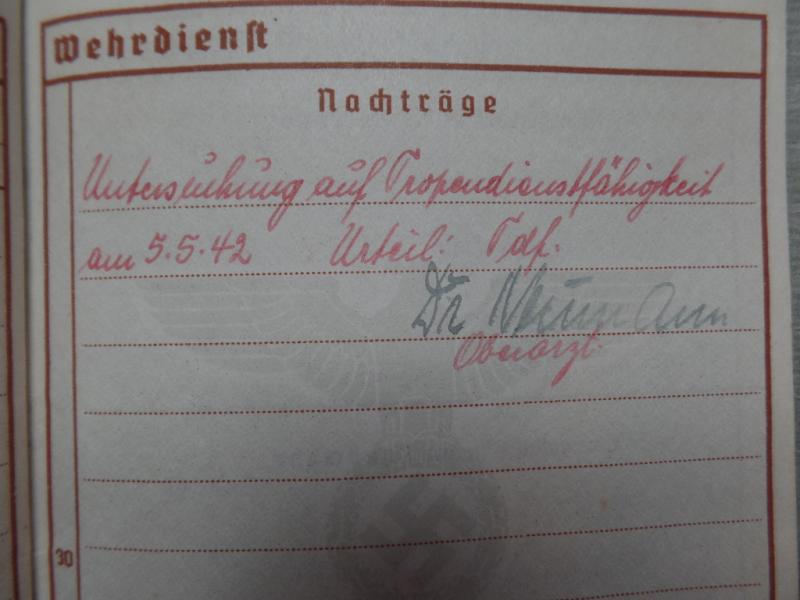 Wehrdienst
Nachträge
Untersuchung auf Tropendienstfähigkeit
am 5.5.42 Urteil: Tdf.
Dr Neumann
Oberarzt.
30